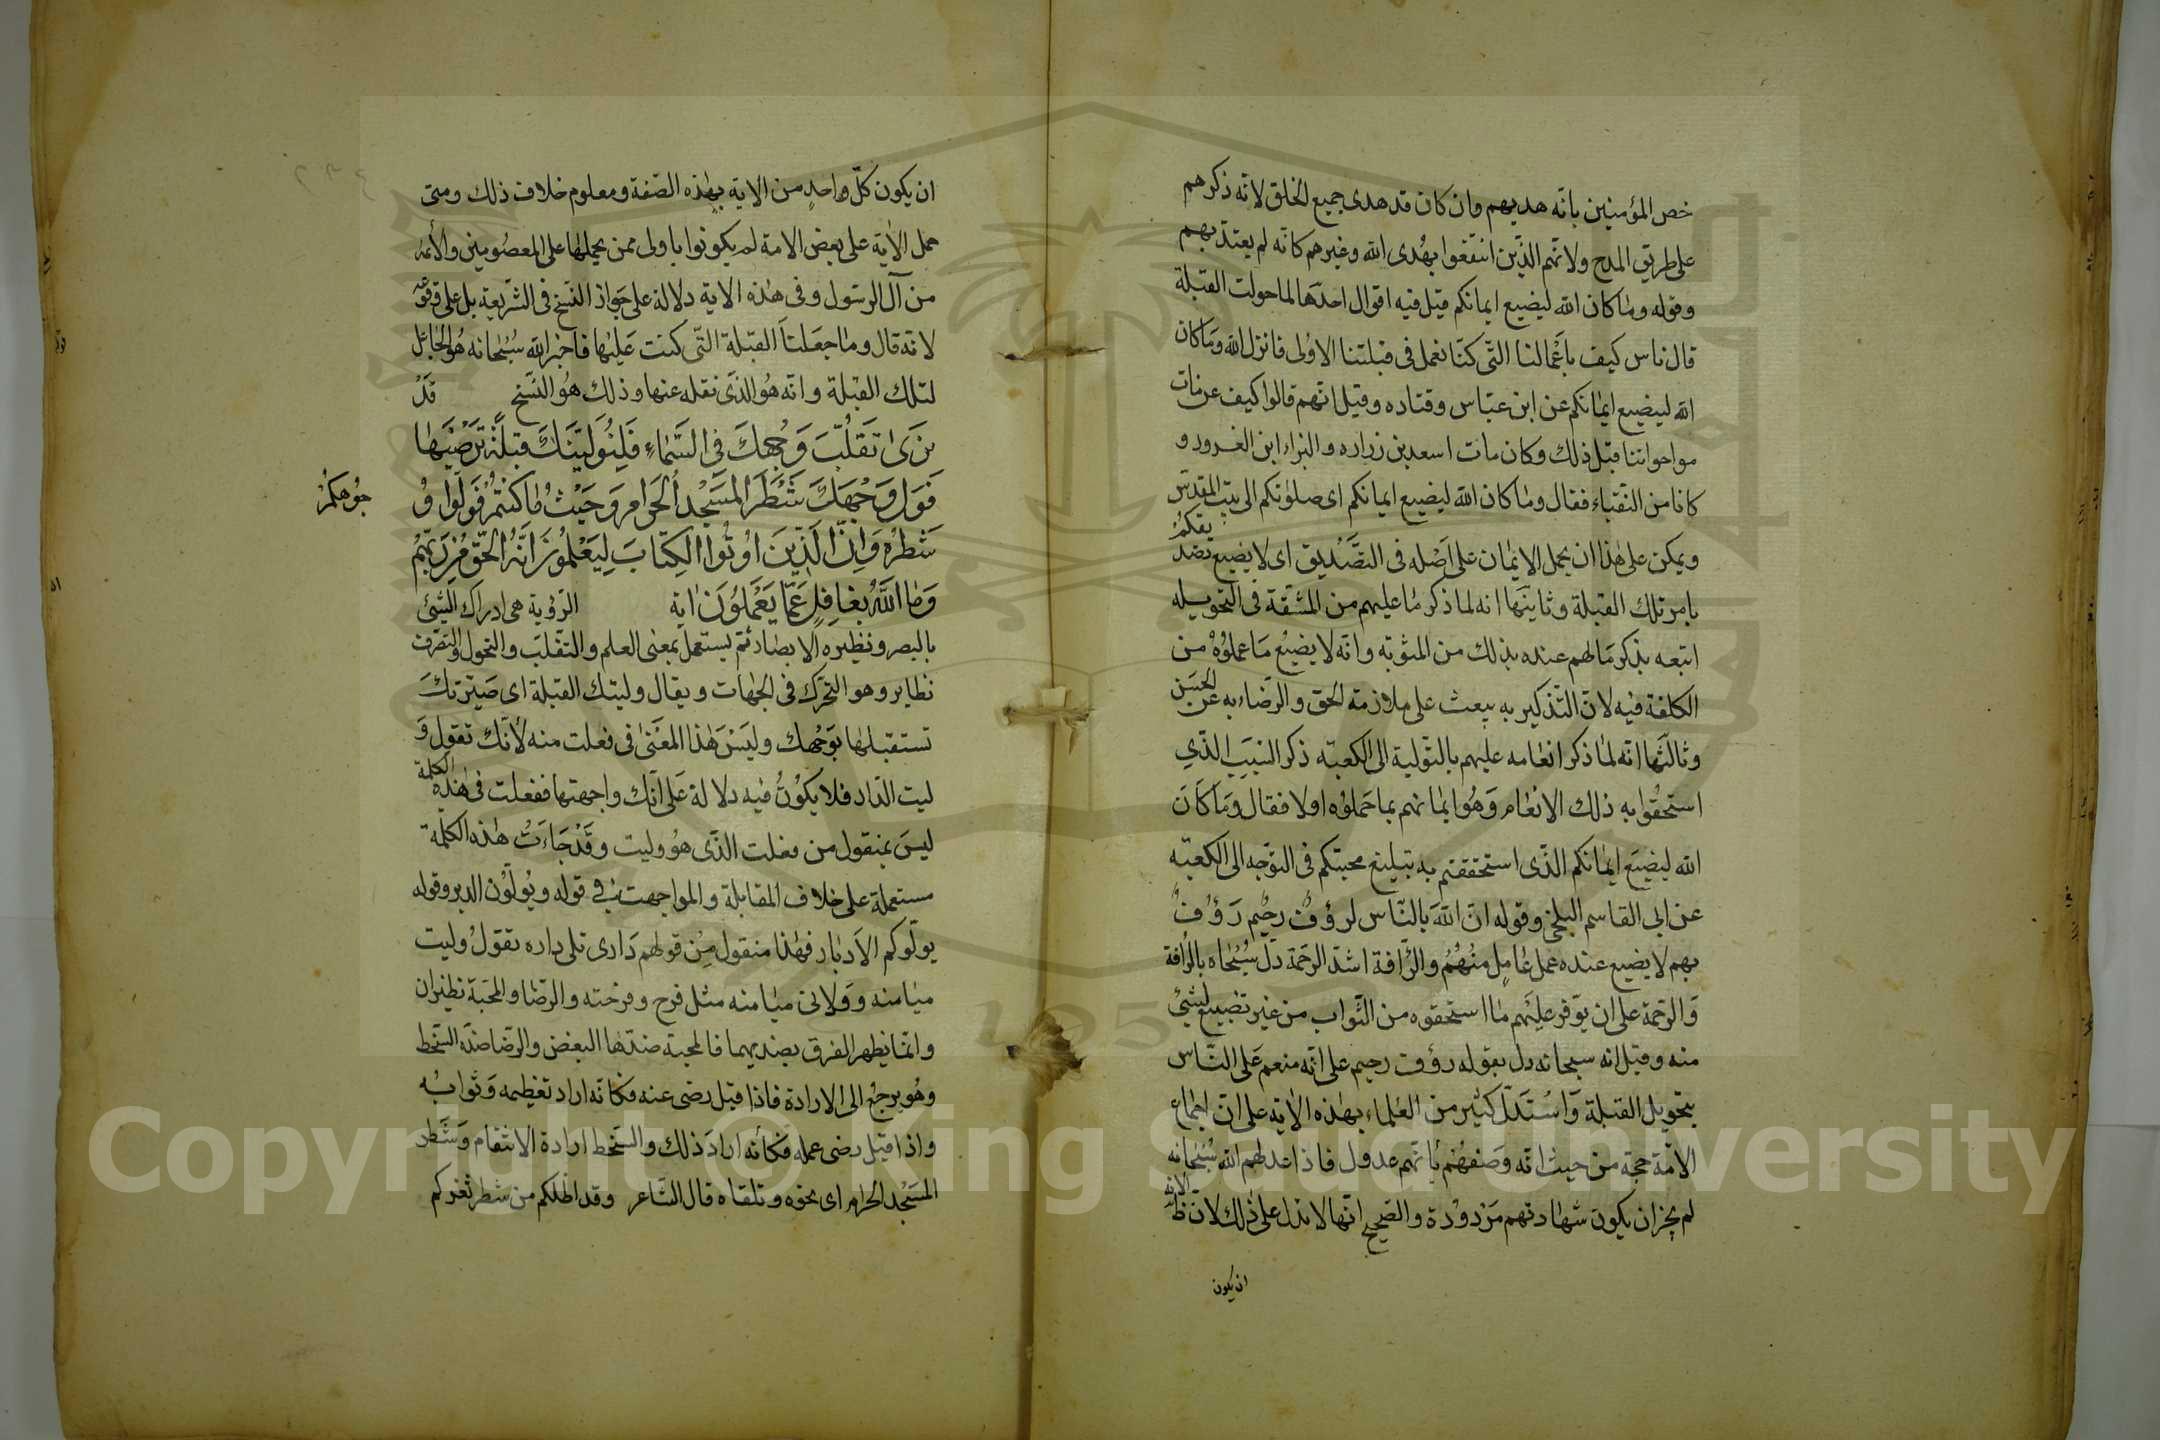 خص المؤمنين بانّه هديهم وان كان قد هدى جميع الخلق لانّه ذكرهم
على طريق المدح ولانّهم الذّين انتفعوا بهُدى الله وغيرهم كانّه لم يعتدّ بهم
وقوله ومٰا كان الله ليضيع ايمانكم قيل فيه اقوال احدّها لما حولت القبلة
قال ناس كيف باَعْمالنا التّى كنّا نعمل فى قبلتنا الاولى فانزل الله ومَا كان
الله ليضيع ايمانكم عن ابن عبّاس وقتاده وقيل انّهم قالوا كيف عن مات
مواحواننا قبل ذلك وكان مات اسعد بن زراره والبراء ابن الغرور و
كانا من النّقباء فقال ومٰا كان الله ليضيع ايمانكم اى صلوٰتكم الى بيت المقدّس
ويمكن على هٰذا ان يحمل الايمان على اَصْله فى التصَّديق اى لا يضيع تصد
يقكمُ
بامر تلك القبلة وثانيّها انه لما ذكر مٰا عليهم من المشقة فى التحويله
اتبعه بذكر مَالهم عنده بذلك من المثوبة وانّه لا يضيعُ مَا عملوُهْ من
الكلفة فيه لانّ التّذكير به يبعث على ملازمة الحقّ والرّضاء به عن الحسَن
وثالثّها انّه لمٰا ذكر انعٰامه عليهم بالتّولية الى الكعبة ذكر السَبَب الذّي
استحقّوا به ذلك الانعٰام وَهُو ايمٰانهم بما حَملوُه اولا فقال ومَا كَانَ
الله ليضيَع ايمٰانكم الذّى استحققتم به تبليغ محبتكم فى التوّجه الى الكعبّه
عن ابى القاسم البلخى وقوله انّ اللّهَ بالنّاس لرؤفٌ رحُيم رَؤُفٌ
بهم لا يضيع عنده عمل عٰامِل منُهمُ والرّافة اشدّ الرحّمة دلّ سُبُحٰانه بالرّافة
وَالرحّمة على ان يوّفر علَيهم مٰا استحقوه من الثّواب من غير تضييع لشيئ
منه وقيل انه سبحانه دل بقوله رؤف رحيم على انّه منعم عَلى النّاس
بتحويل القبلة وَاسُتدَلّ كثير من العُلماء بهٰذه الاية على انّ اجماع
الامّة حجة من حيث انّه وصَفهُم بأنّهم عدول فاذا عدلهم الله سُبْحٰانه
لم يجز ان يكون شهادتهم مَرْدوُدة والصّحيح انّها لا تدل على ذلك لانّ ظٰا
الاية
ان يكون
ان يكون كلّ واحدٍ من الاية بهٰذه الصّفة ومعلوم خلاف ذلك ومتى
حمل الاٰية على بعض الامة لم يكونوا باولى ممن يحملهٰا على المعصُومين والأئمة
من آل الرسّول وفى هٰذه الاية دلالة على جوَاز النّسخ فى الشّريعة بل على وقوعه
لانه قال ومٰا جعَلنَا القبلة التّى كنت عَليْها فاخبر الله سُبُحانه هُو الجٰاعل
لتلك القبْلة وانّه هُو الذّى نقله عنها وذلك هُو النّسخ قَدْ
نَرىٰ تَقَلُّبَ وَجُهِكَ فِى السَّمٰاءِ فَلِنُوَلّيَنَّكَ قِبلَةً تَرْضٰيهٰا
فَوَل وَجْهَكَ شَطْرَ المسَجْدِ الحَرامِ وَحَيْثُ مٰا كنتمُْ فَولّوا وُ
جوُهكمُْ
شَطْرَهُ وَاِنَّ الَّذِيَن اوُتُوا الكِتَابَ ليَعْلمُوُنَ اَنَّهُ الحَقّ مُن رَبّهِمُ
وَمٰا اللّٰهُ بغٰافِلٍ عَمّٰا يَعْمَلوُنَ اية الرّؤية هى ادراك الشّيئ
بالبصر ونظيره الابصٰار ثم يستعمل بمعنى العلم والتقّلبّ والتحوّل والتصّرف
نظاير وهو التحّرّك فى الجهٰات ويقال وليتك القبلة اى صَيّرتكَ
تستقبلهٰا بوَجْهك وليَسَْ هٰذا المَعْنىٰ فى فعلت منه لأنّك تقول وَ
ليت الدّار فلا يكوُنُْ فيه دلالة عَلى انّك واجهتها ففعلت فى هٰذه الكلمة
ليسَ بمنقول من فعلت الذّى هوُ وليت وقَدْ جَاءَتْ هٰذه الكلمة
مستعملة على خلاف المقابلة والمواجهت فى قوله ويُولّوُن الدبر وقوله
يولّوكم الاَدبٰار فهٰذا منقول مِن قولهم دَارى تلى داره تقوّلُ وليت
ميٰامنه وَوَلانى ميٰامنه مثل فرح وفرحته والرّضٰا والمحَبة نظيران
وانمّا يظهر الفرق بضديهما فالمحبة ضدّها البغض والرّضا ضدّه السّخط
وهُو يرجُع الى الارادة فاذا قيل رضى عنه فكانّه اراد تعظيمه وَثوابُه
واذا قيل رضى عمله فكأنّه ارادَ ذلك والسّخط ارادة الانتقام وَشَطر
المسَجْد الحرام اى نحوه وتلقاه قال الشّاعر وقد اظلكم من شطر ثغركم
Copyright © King Saud University